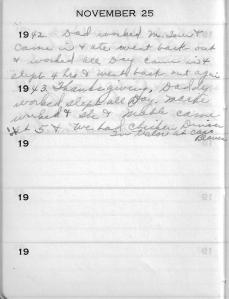 NOVEMBER 25
1942. Dad worked M.
came in & ate went back out
& worked all Day came in &
slept 4 hrs & went back out agin
1943. Thanksgiving, Daddy
worked, slept all Day.
worked & She & Mable came
at 5 & We had Chicken Dinner
19
19
19